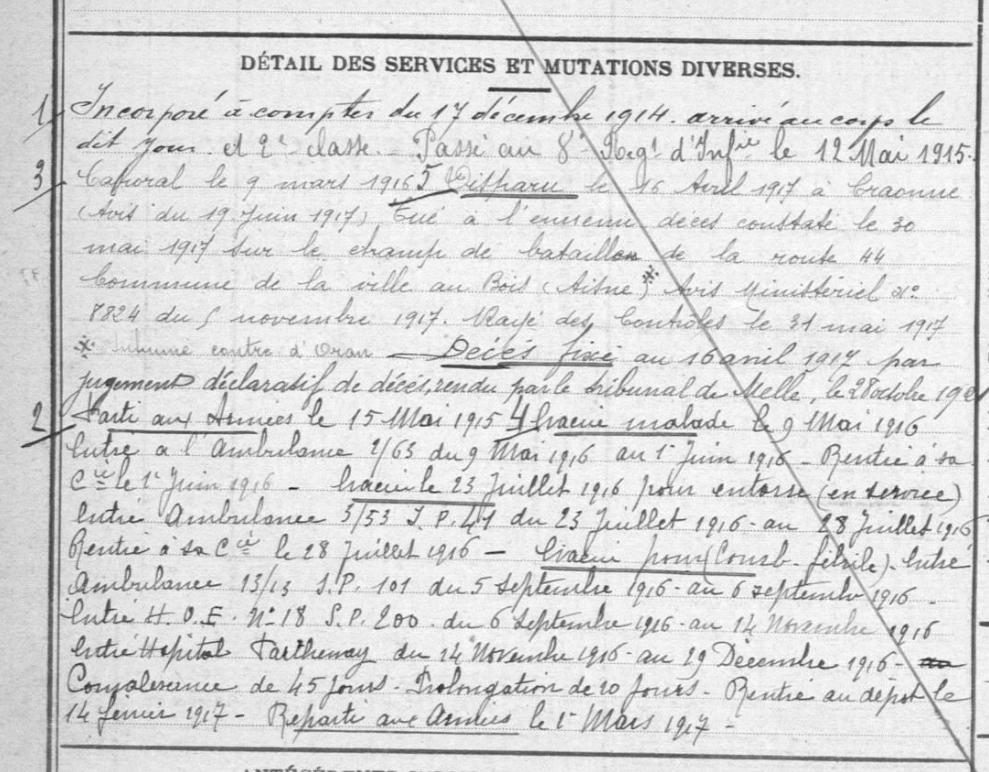 DÉTAIL DES SERVICES ET MUTATIONS DIVERSES.
1 Incorporé à compter du 17 décembre 1914. arrivé au corps le
dit jour. et 2e classe. Passé au 8e Regt d'Infie le 12 Mai 1915.
3 Caporal le 9 mars 1916 5 Disparu le 16 Avril 1917 à Craonne
(Avis du 19 Juin 1917) Tué à l'ennemi décès constaté le 30
mai 1917 sur le champ de bataille de la route 44
Commune de la ville au Bois (Aisne) * Avis Ministériel No
8824 du 5 novembre 1917. Rayé des Contrôles le 31 mai 1917
* Inhumé contre d'Oran — Décès fixé au 16 avril 1917 par
jugement déclaratif de décès, rendu par le tribunal de Melle, le 28 octobre 192
2 Parti aux Armées le 15 Mai 1915 4 Evacué malade le 9 Mai 1916
Entré a l'Ambulance 2/63 du 9 Mai 1916 au 1er Juin 1916 - Rentré à sa
Cie le 1er Juin 1916 - Evacué le 23 Juillet 1916 pour entorse (en service)
Entré Ambulance 3/53 S.P. 47 du 23 Juillet 1916 - au 28 Juillet 1916
Rentré à sa Cie le 28 Juillet 1916 — Evacué pour (Courb. fébrile). Entré
Ambulance 13/13 S.P. 101 du 5 septembre 1916 - au 6 septembre 1916 -
Entré H.O.E. No 18 S.P. 200. du 6 Septembre 1916 - au 14 Novembre 1916
Entré Hôpital Parthenay du 14 Novembre 1916 - au 29 Décembre 1916 -
Convalescence de 45 Jours - Prolongation de 10 Jours - Rentré au dépôt le
14 février 1917 - Reparti aux Armées le 1er Mars 1917 -